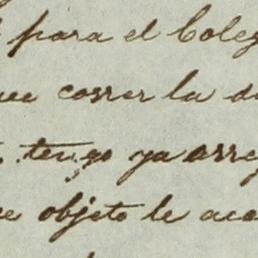 para el Coleg
correr la d
tengo ya arreg
objeto le aco